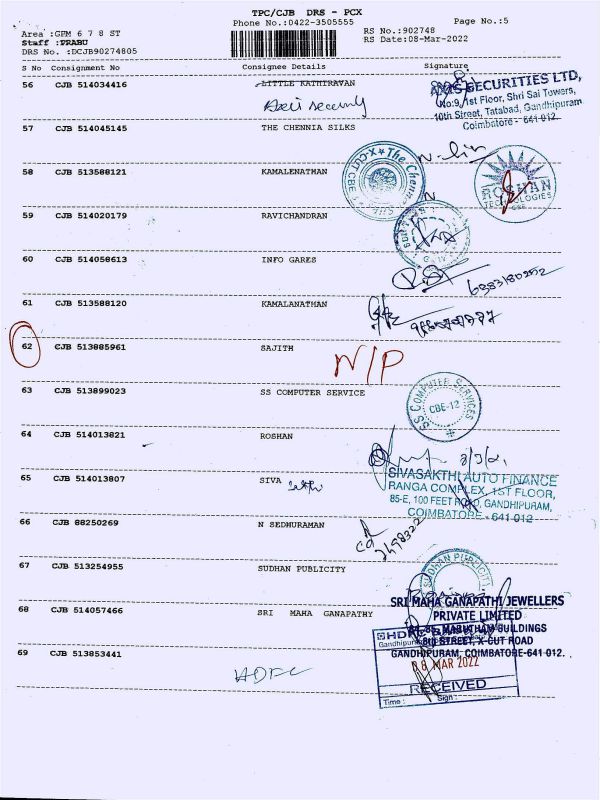 TPC/CJB DRS - PCX
Phone No.:0422-3505555
Page No.:5
Area :GPM 6 7 8 ST
RS No.:902748
Staff :PRABU
RS Date:08-Mar-2022
DRS No. :DCJB90274805
S No Consignment No Consignee Details Signature
56 CJB 514034416 LITTLE KATHIRAVAN
Axis Security
AXIS SECURITIES LTD,
No:9, 1st Floor, Shri Sai Towers,
10th Street, Tatabad, Gandhipuram
Coimbatore - 641 012.
57 CJB 514045145 THE CHENNIA SILKS
58 CJB 513588121 KAMALENATMAN
ROSHAN
TECHNOLOGIES
59 CJB 514020179 RAVICHANDRAN
60 CJB 514058613 INFO GARES
61 CJB 513588120 KAMALANATMAN
62 CJB 513885961 SAJITH
N/P
63 CJB 513899023 SS COMPUTER SERVICE
SS COMPUTER SERVICES
CBE-12
64 CJB 514013821 ROSHAN
65 CJB 514013807 SIVA
SIVASAKTHI AUTO FINANCE
RANGA COMPLEX, 1ST FLOOR,
85-E, 100 FEET ROAD, GANDHIPURAM,
COIMBATORE - 641 012
66 CJB 88250269 N SEDHURAMAN
67 CJB 513254955 SUDHAN PUBLICITY
SUDHAN PUBLICITY
68 CJB 514057466 SRI MAHA GANAPATHY
SRI MAHA GANAPATHI JEWELLERS
PRIVATE LIMITED
MARUTHAM BUILDINGS
8th STREET, X-CUT ROAD
GANDHIPURAM, COIMBATORE-641 012.
69 CJB 513853441
HDFC
HDF
Gandhipuram
08 MAR 2022
RECEIVED
Time : Sign :